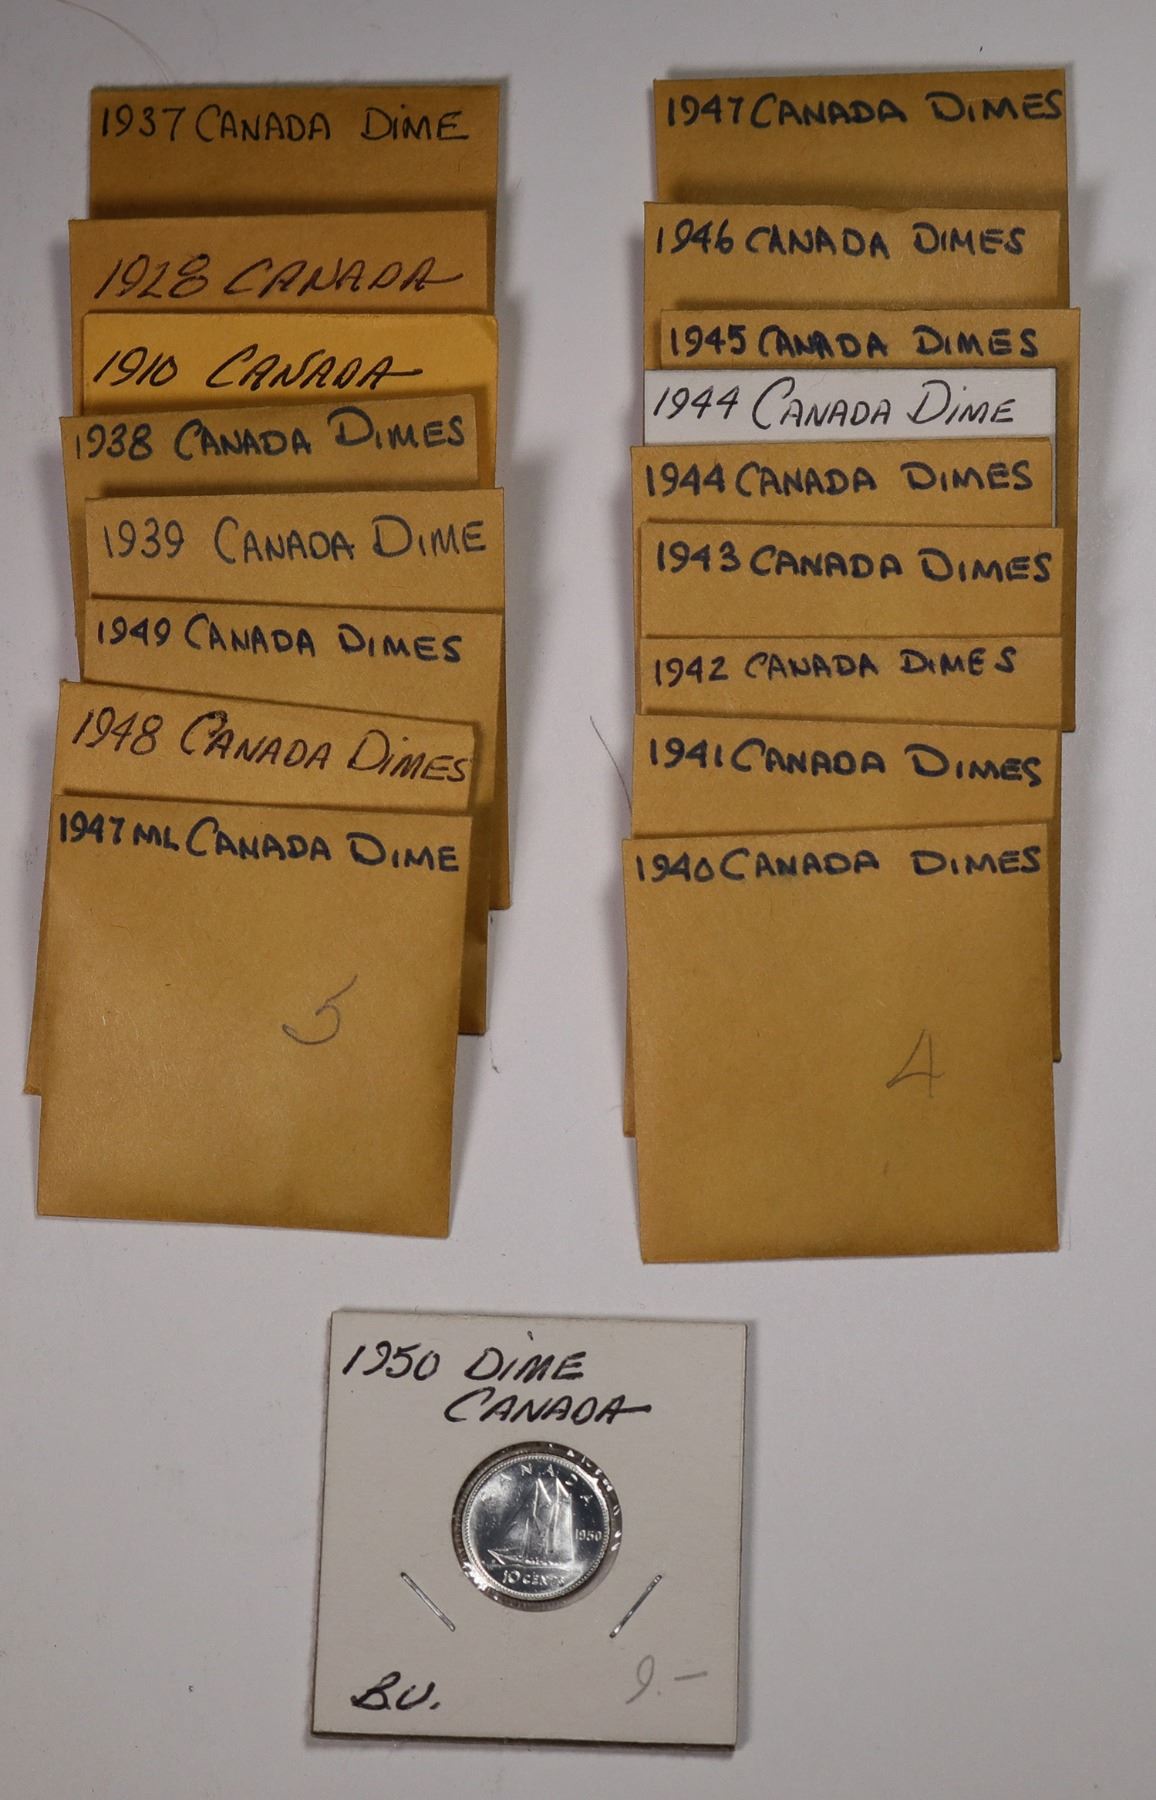 1937 CANADA DIME
1928 CANADA
1910 CANADA
1938 CANADA DIMES
1939 CANADA DIME
1949 CANADA DIMES
1948 CANADA DIMES
1947 ML CANADA DIME
5
1947 CANADA DIMES
1946 CANADA DIMES
1945 CANADA DIMES
1944 CANADA DIME
1944 CANADA DIMES
1943 CANADA DIMES
1942 CANADA DIMES
1941 CANADA DIMES
1940 CANADA DIMES
4
1950 DIME
CANADA
CANADA
1950
10 CENTS
B.U.
9.-